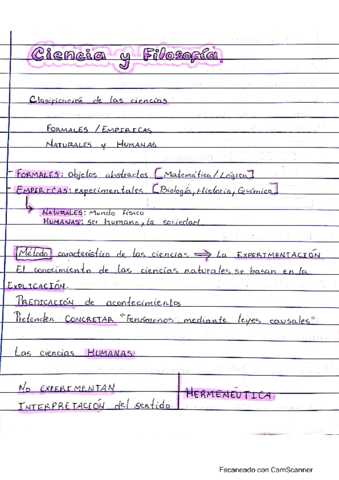 Ciencia y Filosofía
Clasificación de las ciencias
FORMALES / EMPIRICAS
NATURALES y HUMANAS
- FORMALES: objetos abstractos [Matemática / Lógica]
- EMPIRICAS: experimentales [Biología, Historia, Química]
NATURALES: Mundo físico
HUMANAS: ser humano, la sociedad
Método característico de las ciencias ⇒ La EXPERIMENTACIÓN
El conocimiento de las ciencias naturales se basan en la
EXPLICACIÓN.
PREDICACIÓN de acontecimientos
Pretenden CONCRETAR "Fenómenos mediante leyes causales"
Las ciencias HUMANAS
NO EXPERIMENTAN
INTERPRETACIÓN del sentido
HERMENÉUTICA
Escaneado con CamScanner